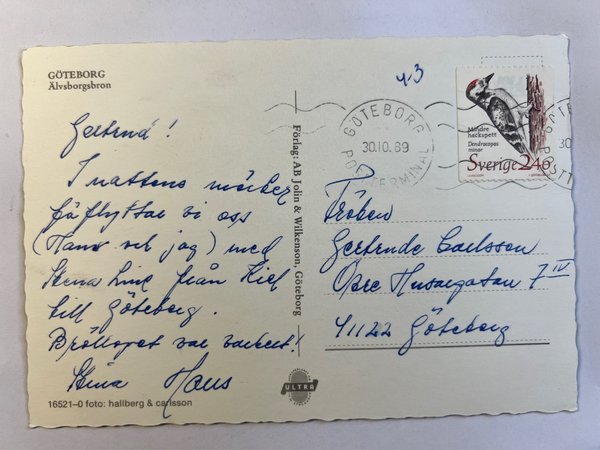 GÖTEBORG
Älvsborgsbron
4-3
Gertrud!
I nattens mörker
förflyttar vi oss
(Hans och jag) med
Stena Line från Kiel
till Göteborg.
Bröllopet var vackert!
Stina Hans
16521–0 foto: hallberg & carlsson
Förlag: AB Jolin & Wilkenson, Göteborg
ULTRA
GÖTEBORG
30.10.89
POSTTERMINAL
Mindre
hackspett
Dendrocopos
minor
Sverige 2.40
GÖ
30.
POSTT
Fröken
Gertrude Carlsson
Övre Husargatan 7 IV
41122 Göteborg